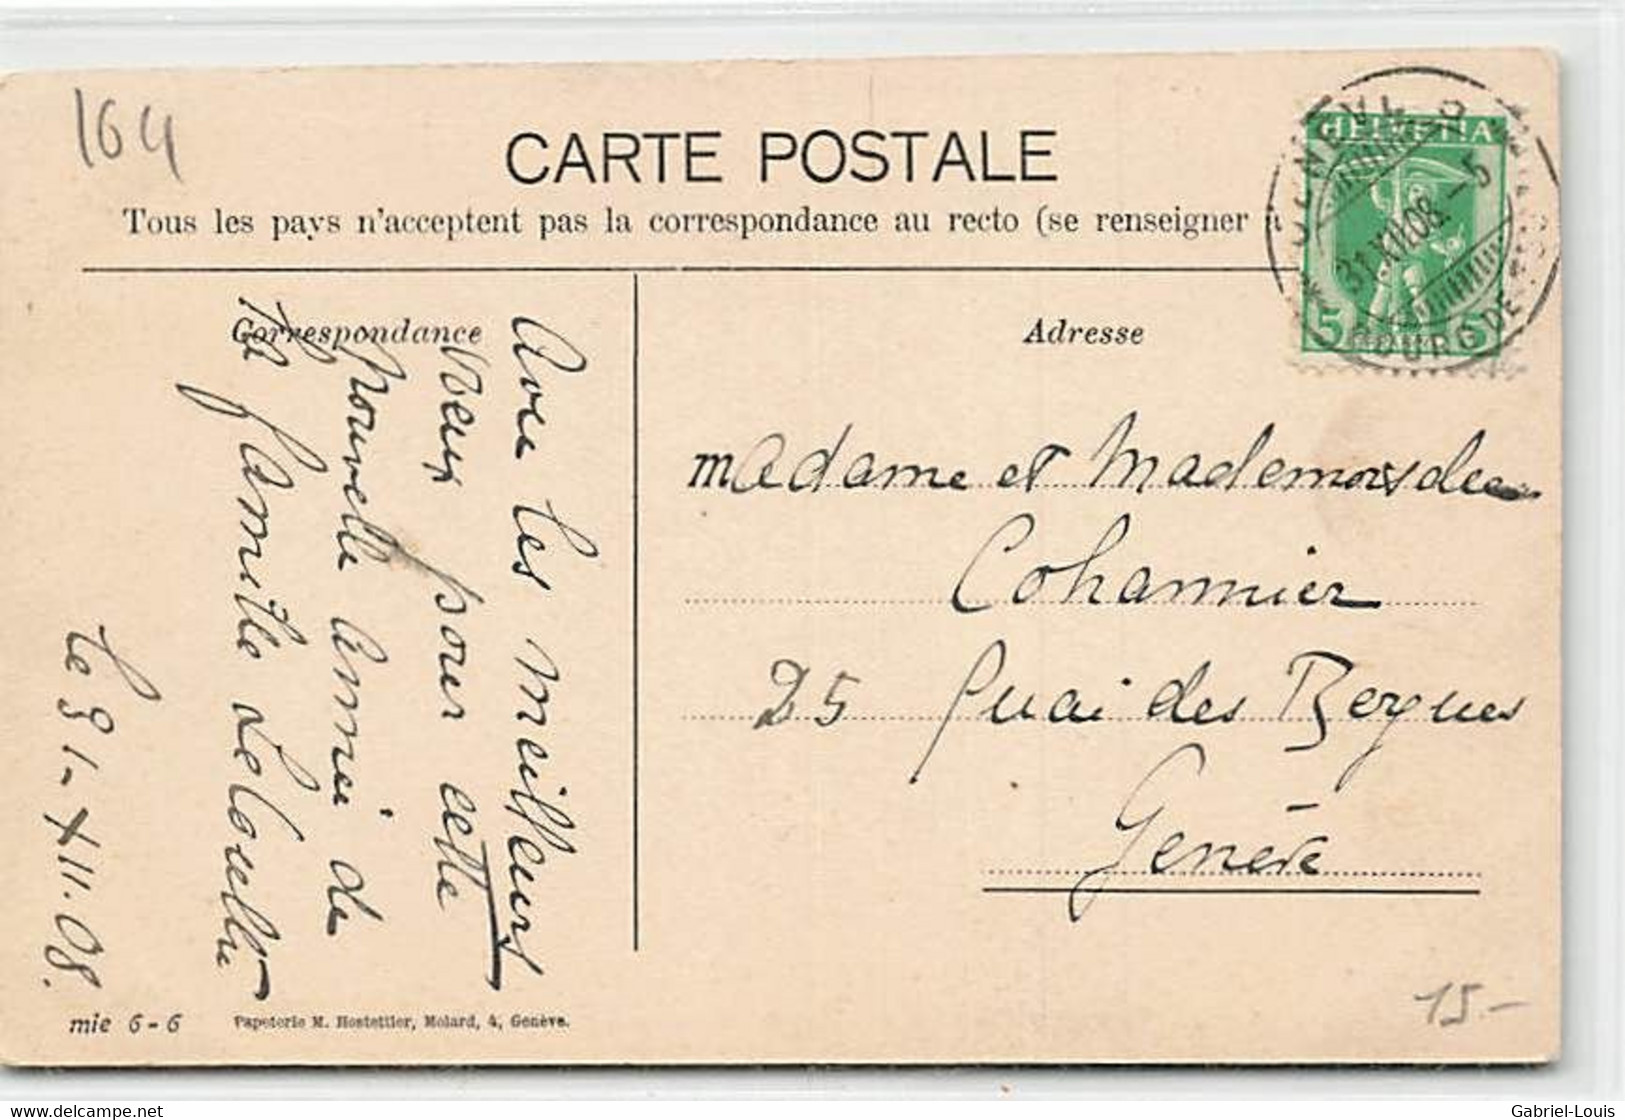 164
CARTE POSTALE
Tous les pays n'acceptent pas la correspondance au recto (se renseigner
HELVETIA
31.XII.08.-5
5 5
BOURG DE
Correspondance
Adresse
Avec les meilleurs
vœux pour cette
nouvelle année de
la famille
le 31-XII.08.
Madame et Mademoiselle
Cohannier
25 Quai des Bergues
Genève
15.-
mie 6-6
Papeterie M. Hostettler, Molard, 4, Genève.
www.delcampe.net
Gabriel-Louis